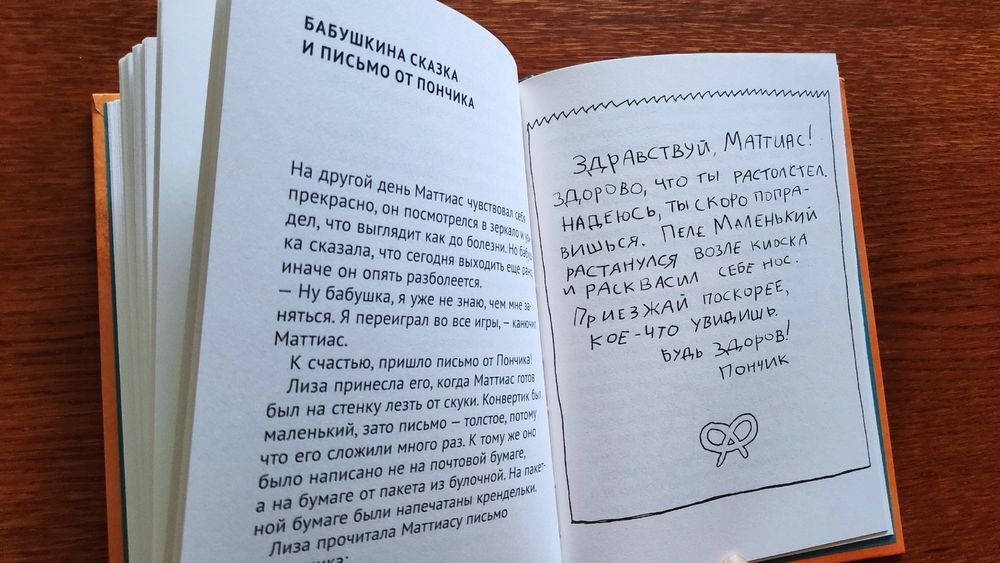 БАБУШКИНА СКАЗКА
И ПИСЬМО ОТ ПОНЧИКА
На другой день Маттиас чувствовал себя
прекрасно, он посмотрелся в зеркало и
дел, что выглядит как до болезни. Но
ка сказала, что сегодня выходить еще рано,
иначе он опять разболеется.
— Ну бабушка, я уже не знаю, чем мне за-
няться. Я переиграл во все игры, — канючил
Маттиас.
К счастью, пришло письмо от Пончика!
Лиза принесла его, когда Маттиас готов
был на стенку лезть от скуки. Конвертик был
маленький, зато письмо — толстое, потому
что его сложили много раз. К тому же оно
было написано не на почтовой бумаге,
а на бумаге от пакета из булочной. На пакет-
ной бумаге были напечатаны крендельки.
Лиза прочитала Маттиасу письмо
ЗДРАВСТВУЙ, МАТТИАС!
ЗДОРОВО, ЧТО ТЫ РАСТОЛСТЕЛ.
НАДЕЮСЬ, ТЫ СКОРО ПОПРА-
ВИШЬСЯ. ПЕЛЕ МАЛЕНЬКИЙ
РАСТАНУЛСЯ ВОЗЛЕ КИОСКА
И РАСКВАСИЛ СЕБЕ НОС.
ПРИЕЗЖАЙ ПОСКОРЕЕ,
КОЕ-ЧТО УВИДИШЬ.
БУДЬ ЗДОРОВ!
ПОНЧИК